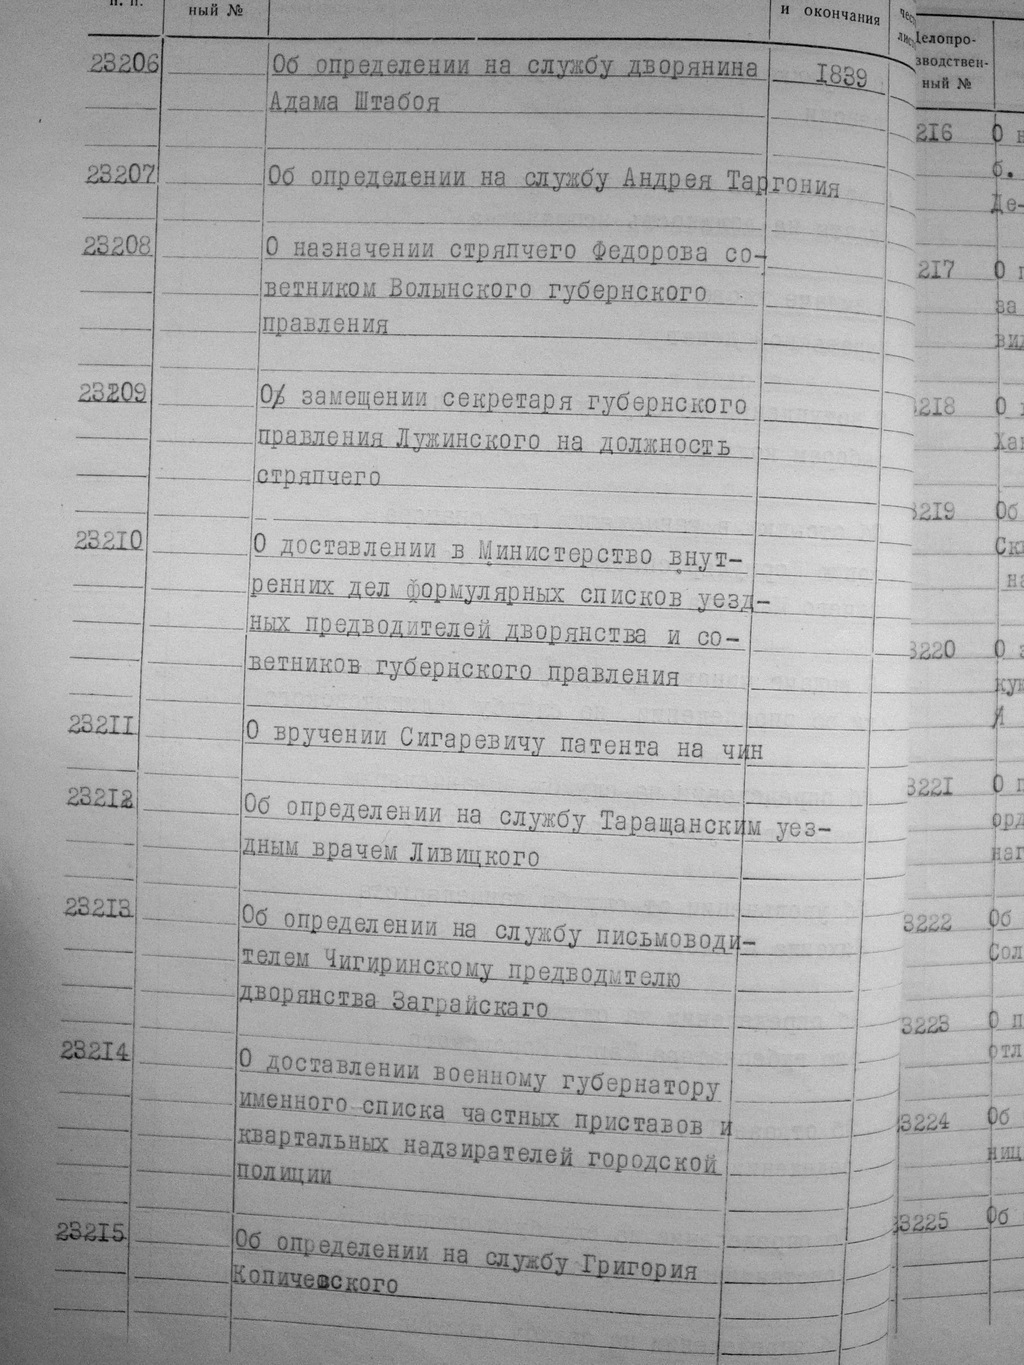 п. п.
ный №
и окончания
23206 Об определении на службу дворянина 1839
Адама Штабоя
23207 Об определении на службу Андрея Таргония
23208 О назначении стряпчего Федорова со-
ветником Волынского губернского
правления
23209 О замещении секретаря губернского
правления Лужинского на должность
стряпчего
23210 О доставлении в Министерство внут-
ренних дел формулярных списков уезд-
ных предводителей дворянства и со-
ветников губернского правления
23211 О вручении Сигаревичу патента на чин
23212 Об определении на службу Таращанским уез-
дным врачем Ливицкого
23213 Об определении на службу письмоводи-
телем Чигиринскому предводмтелю
дворянства Заграйскаго
23214 О доставлении военному губернатору
именного списка частных приставов и
квартальных надзирателей городской
полиции
23215 Об определении на службу Григория
Копичевского
Делопро-
зводствен-
ный №
216 О
б.
Де-
217 О
за
218 О
3219 Об
на
3220 О
3221 О
3222 Об
3223 О
3224 Об
3225 Об